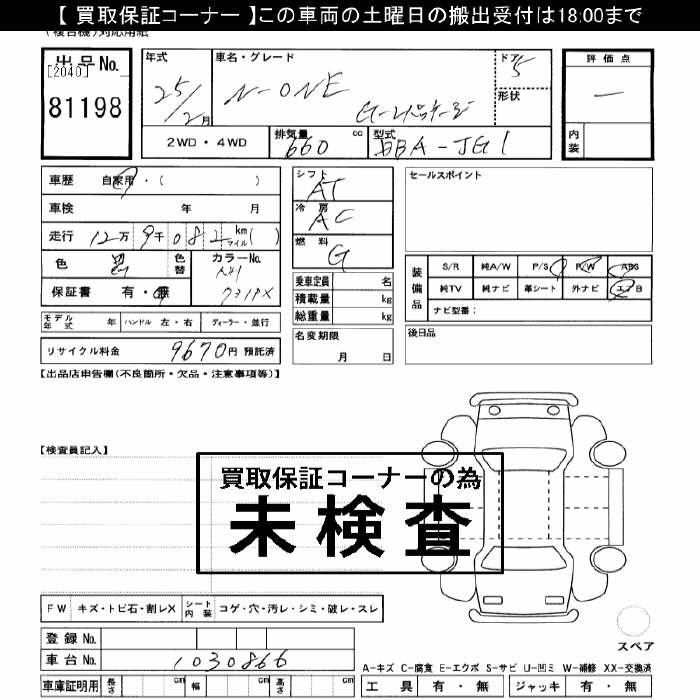 【 買取保証コーナー 】この車両の土曜日の搬出受付は18:00まで
(複合機)対応用紙
出品No.
[2040]
81198
年式
25/2月
車名・グレード
N-ONE
G・Lパッケージ
ドア
5
形状
評価点
―
内装
2WD・4WD
排気量 660 cc
型式 DBA-JG1
車歴 自家用・( )
車検 年 月
走行 12万9千082 km マイル( )
色 黒
色替
カラーNo.
保証書 有・無
モデル年式 年 ハンドル 左・右 ディーラー・並行
リサイクル料金 9670円 預託済
シフト AT
冷房 AC
燃料 G
乗車定員 名
積載量 kg
総重量 kg
名変期限
月 日
セールスポイント
装備品
S/R 純A/W P/S P/W ABS
純TV 純ナビ 革シート 外ナビ エアB
ナビ型番:
後日品
【出品店申告欄(不良箇所・欠品・注意事項等)】
【検査員記入】
買取保証コーナーの為
未検査
FW キズ・トビ石・割レX シート内装 コゲ・穴・汚レ・シミ・破レ・スレ
登録No.
車台No. 1030866
車庫証明用 長さ cm 幅 cm 高さ cm
スペア
A-キズ C-腐食 E-エクボ S-サビ U-凹ミ W-補修 XX-交換済
工具 有・無 ジャッキ 有・無